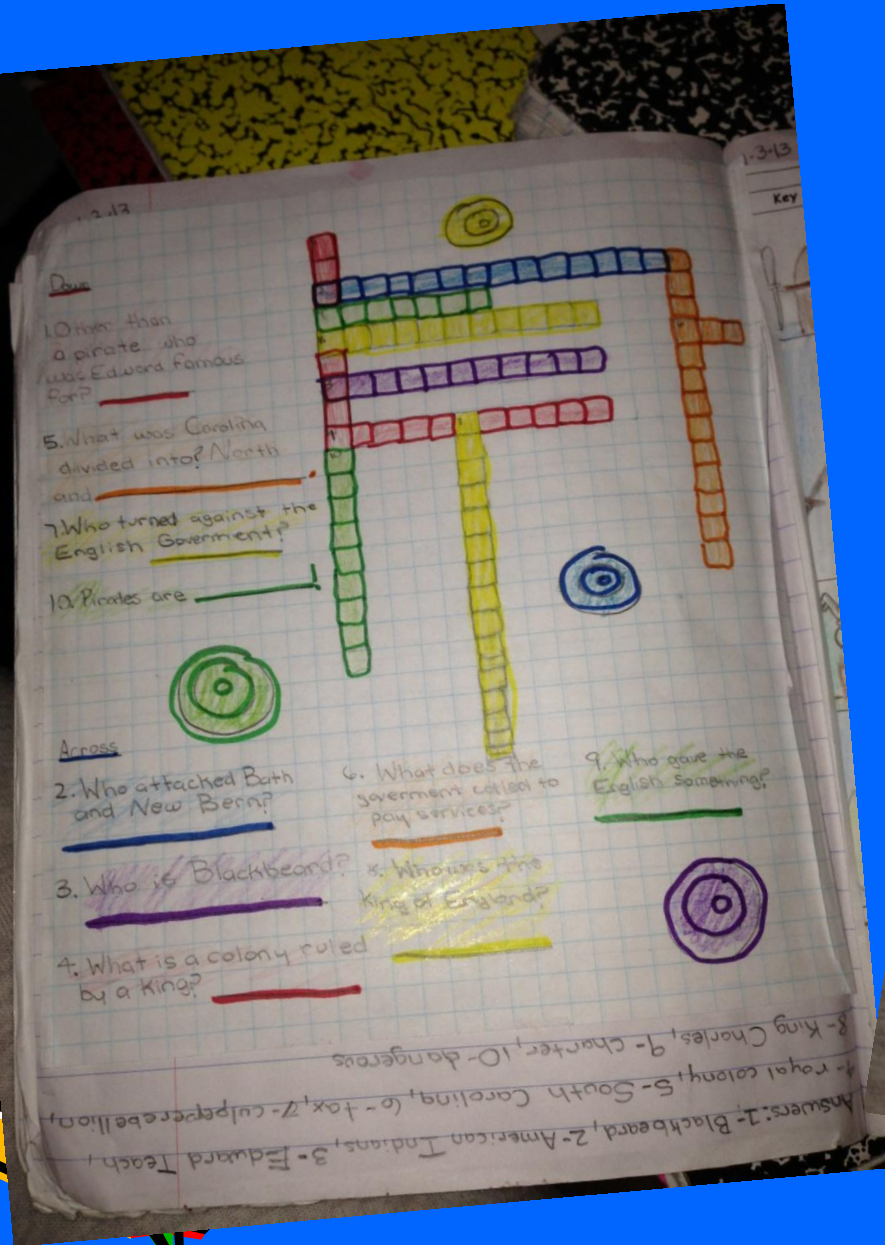 1.2.13
1.3.13
Key
Down
1. Other than
a pirate who
was Edward famous
for?
5. What was Carolina
divided into? North
and
7. Who turned against the
English Goverment?
10. Pirates are
Across
2. Who attacked Bath
and New Bern?
3. Who is Blackbeard?
4. What is a colony ruled
by a King?
6. What does the
goverment collect to
pay services?
8. Who was the
King of England?
9. Who gave the
English Something?
Answers: 1- Blackbeard, 2- American Indians, 3- Edward Teach,
4- royal colony, 5- South Carolina, 6- tax, 7- culpeperebellion,
8- King Charles, 9- charter, 10- dangerous